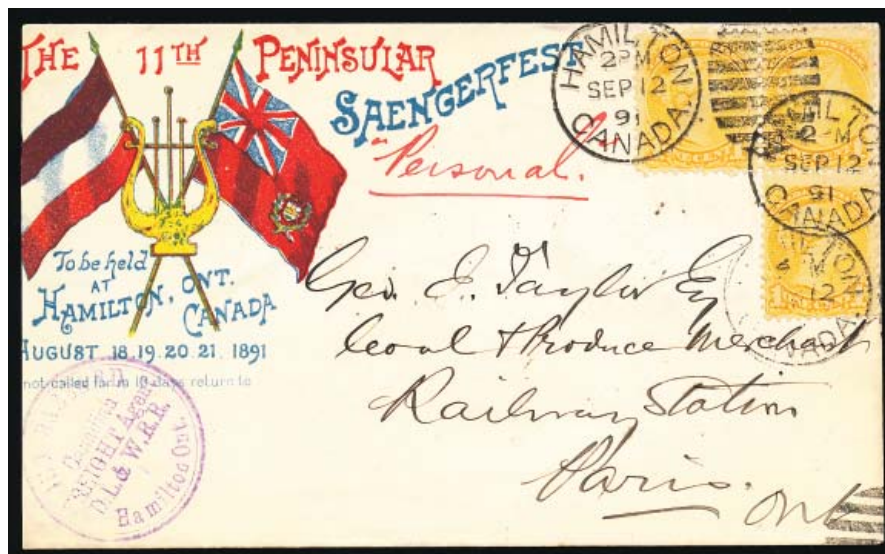 THE 11TH PENINSULAR
SAENGERFEST
To be held
AT
HAMILTON, ONT.
CANADA
AUGUST 18.19.20.21. 1891
not called for in 10 days return to
Canadian
FREIGHT Agent
D.L. & W.R.R.
Hamilton Ont.
HAMILTON
2PM
SEP 12
91
CANADA.
HAMILTON
2 PM
SEP 12
91
CANADA
12
CANADA
"Personal."
Geo. E. Taylor Esq
Coal & Produce Merchant
Railway Station
Paris.
Ont